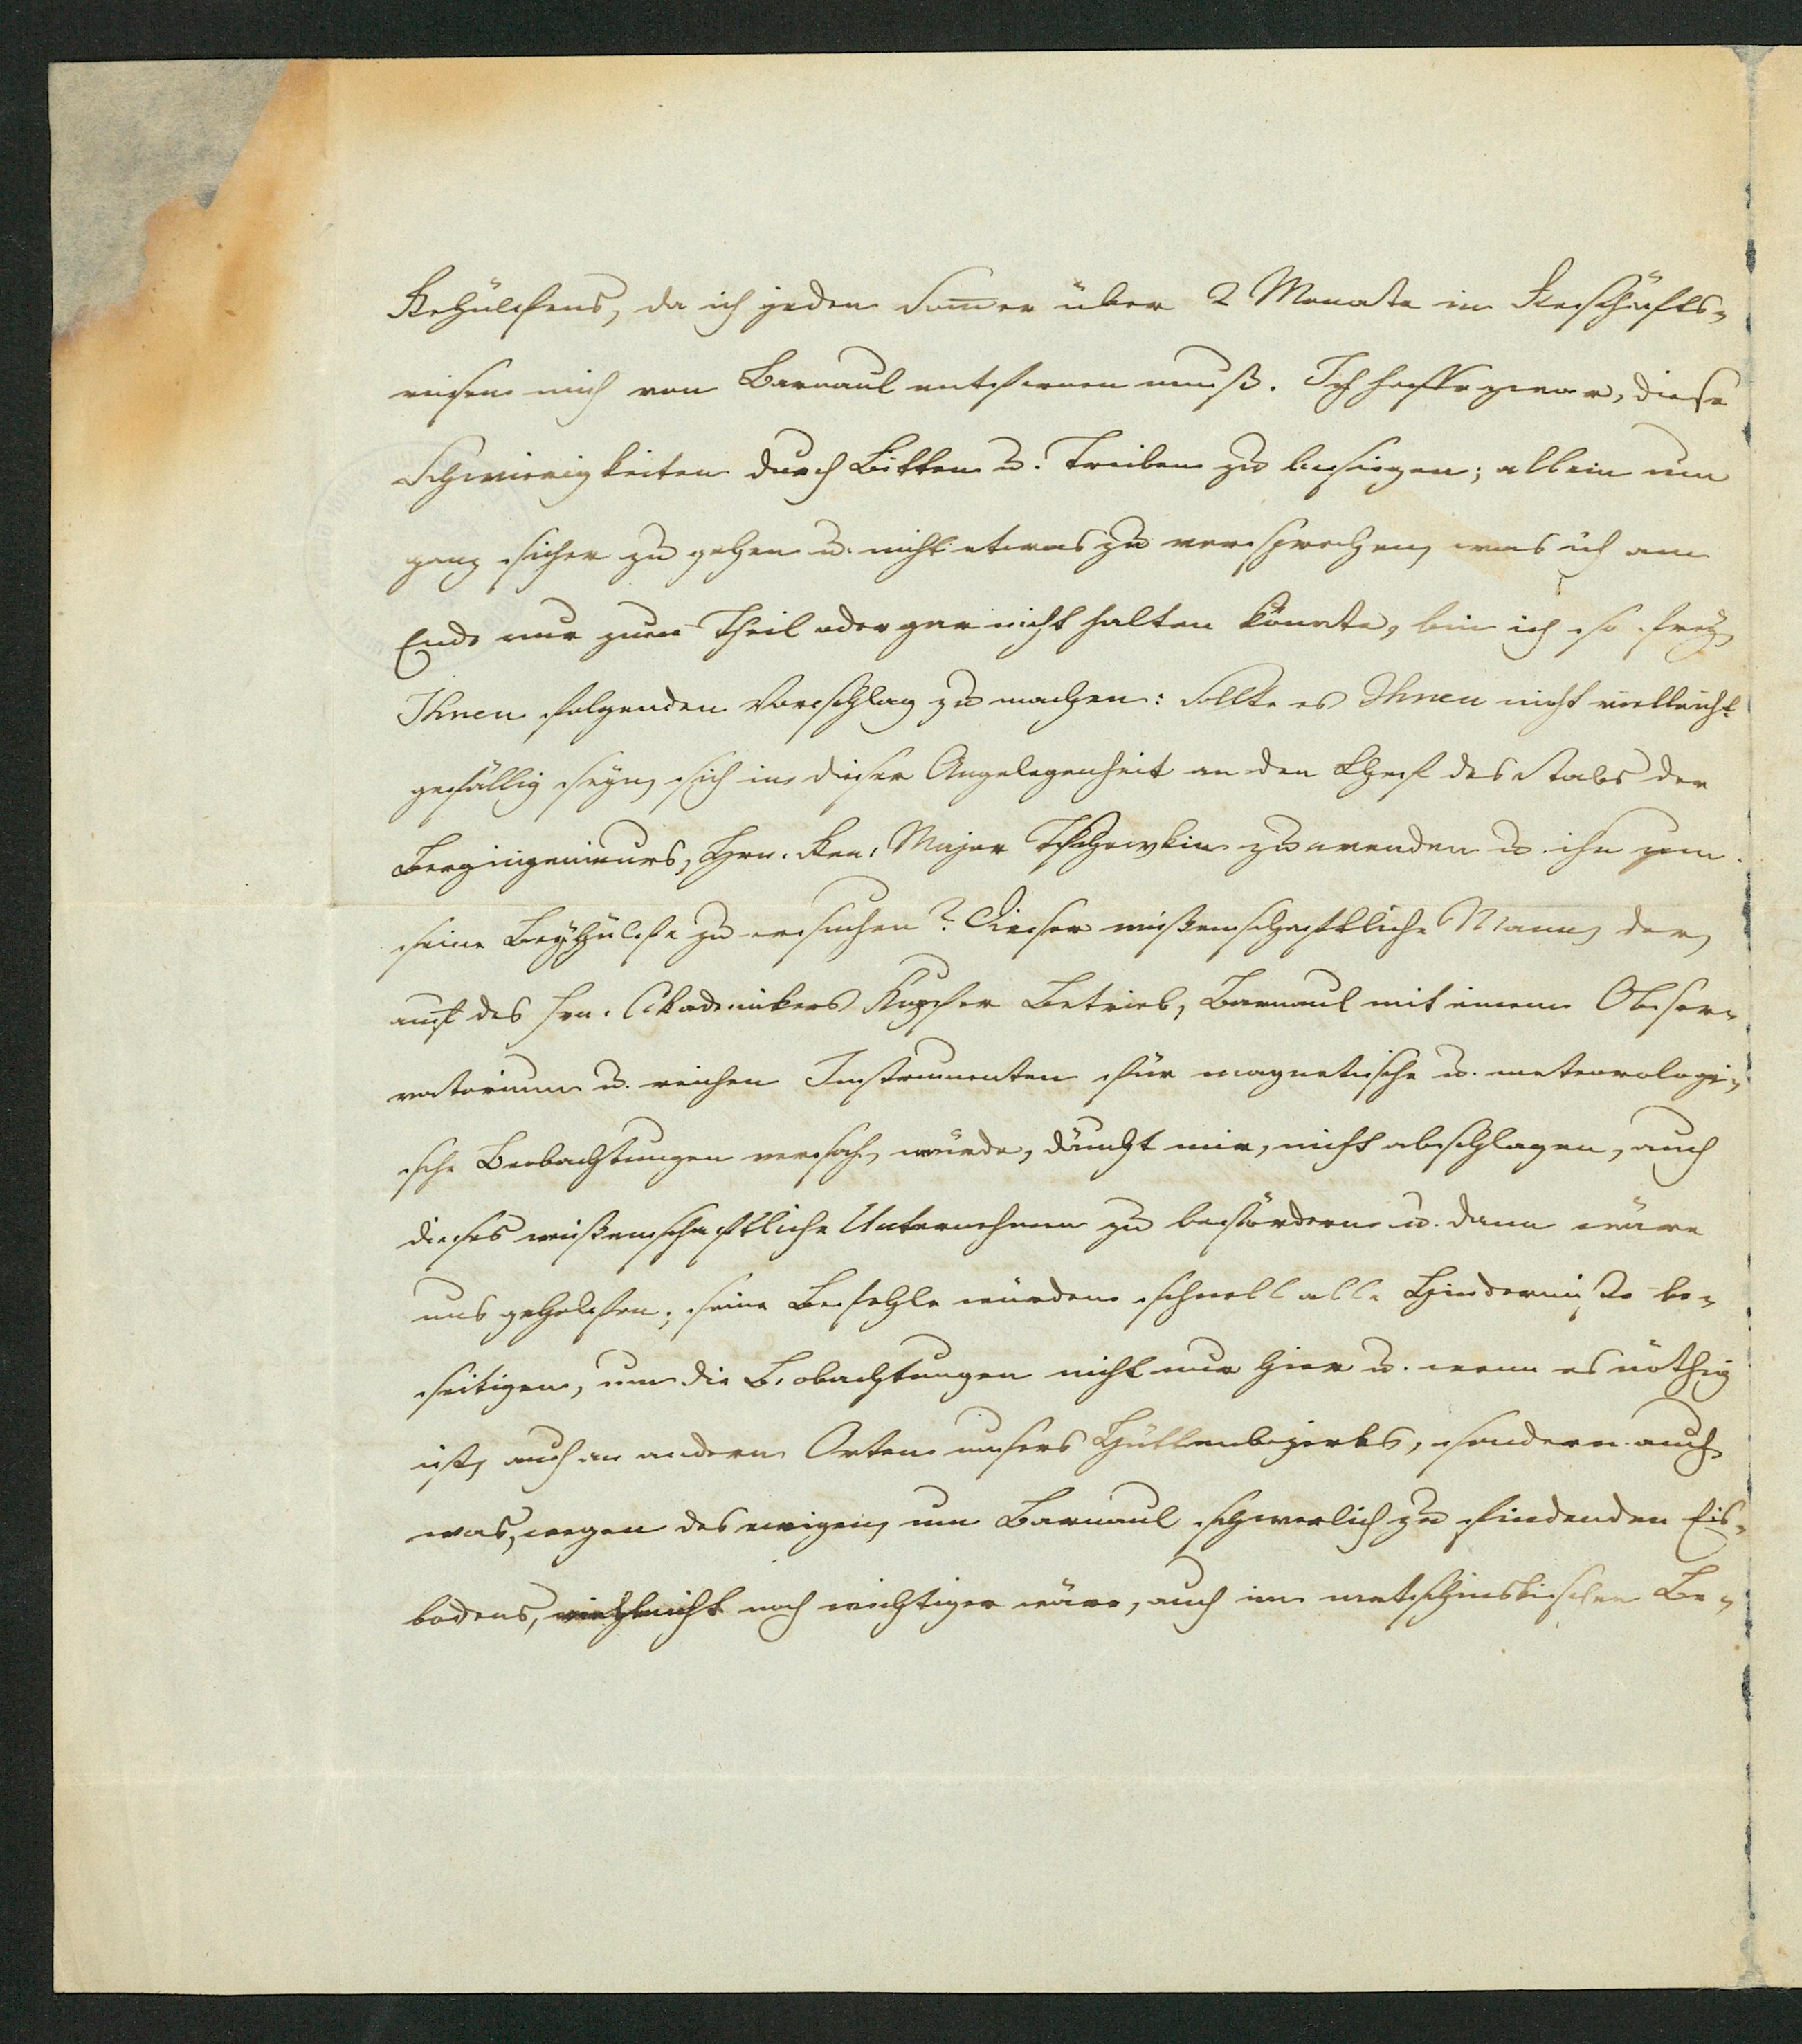 Gehülfens, da ich jeden Som̅er über 2 Monate in Geschäfts-
reisen mich von Barnaul entfernen muß. Ich hoffe zwar, diese
Schwierigkeiten durch Bitten u. Treiben zu besiegen; allein um
ganz sicher zu gehen u. nicht etwas zu versprechen, was ich am
Ende nur zum Theil oder gar nicht halten könnte, bin ich so frey,
Ihnen folgenden Vorschlag zu machen: Sollte es Ihnen nicht vielleicht
gefällig seyn, sich in dieser Angelegenheit an den Chef des Stabs der
Bergingenieurs, Hrn. Gen: Major Tschewkin zu wenden u. ihn um
seine Beyhülfe zu ersuchen? Dieser wißenschaftliche Mann, der,
auf des Hrn. Akademikers Kupfer Betrieb, Barnaul mit einem Obser-
vatorium u. reichen Instrumenten für magnetische u. meteorologi-
sche Beobachtungen versah, würde, däucht mir, nicht abschlagen, auch
dieses wißenschaftliche Unternehmen zu befördern u. dann wäre
uns geholfen; seine Befehle würden schnell alle Hinderniße be-
seitigen, um die Beobachtungen nicht nur hier u. wenn es nöthig
ist, auch an andern Orten unsers Hüttenbezirks, sondern auch
was, wegen des ewigen, um Barnaul schwerlich zu findenden Eis-
bodens, vielleicht noch wichtiger wäre, auch im nertschinskischen Be-